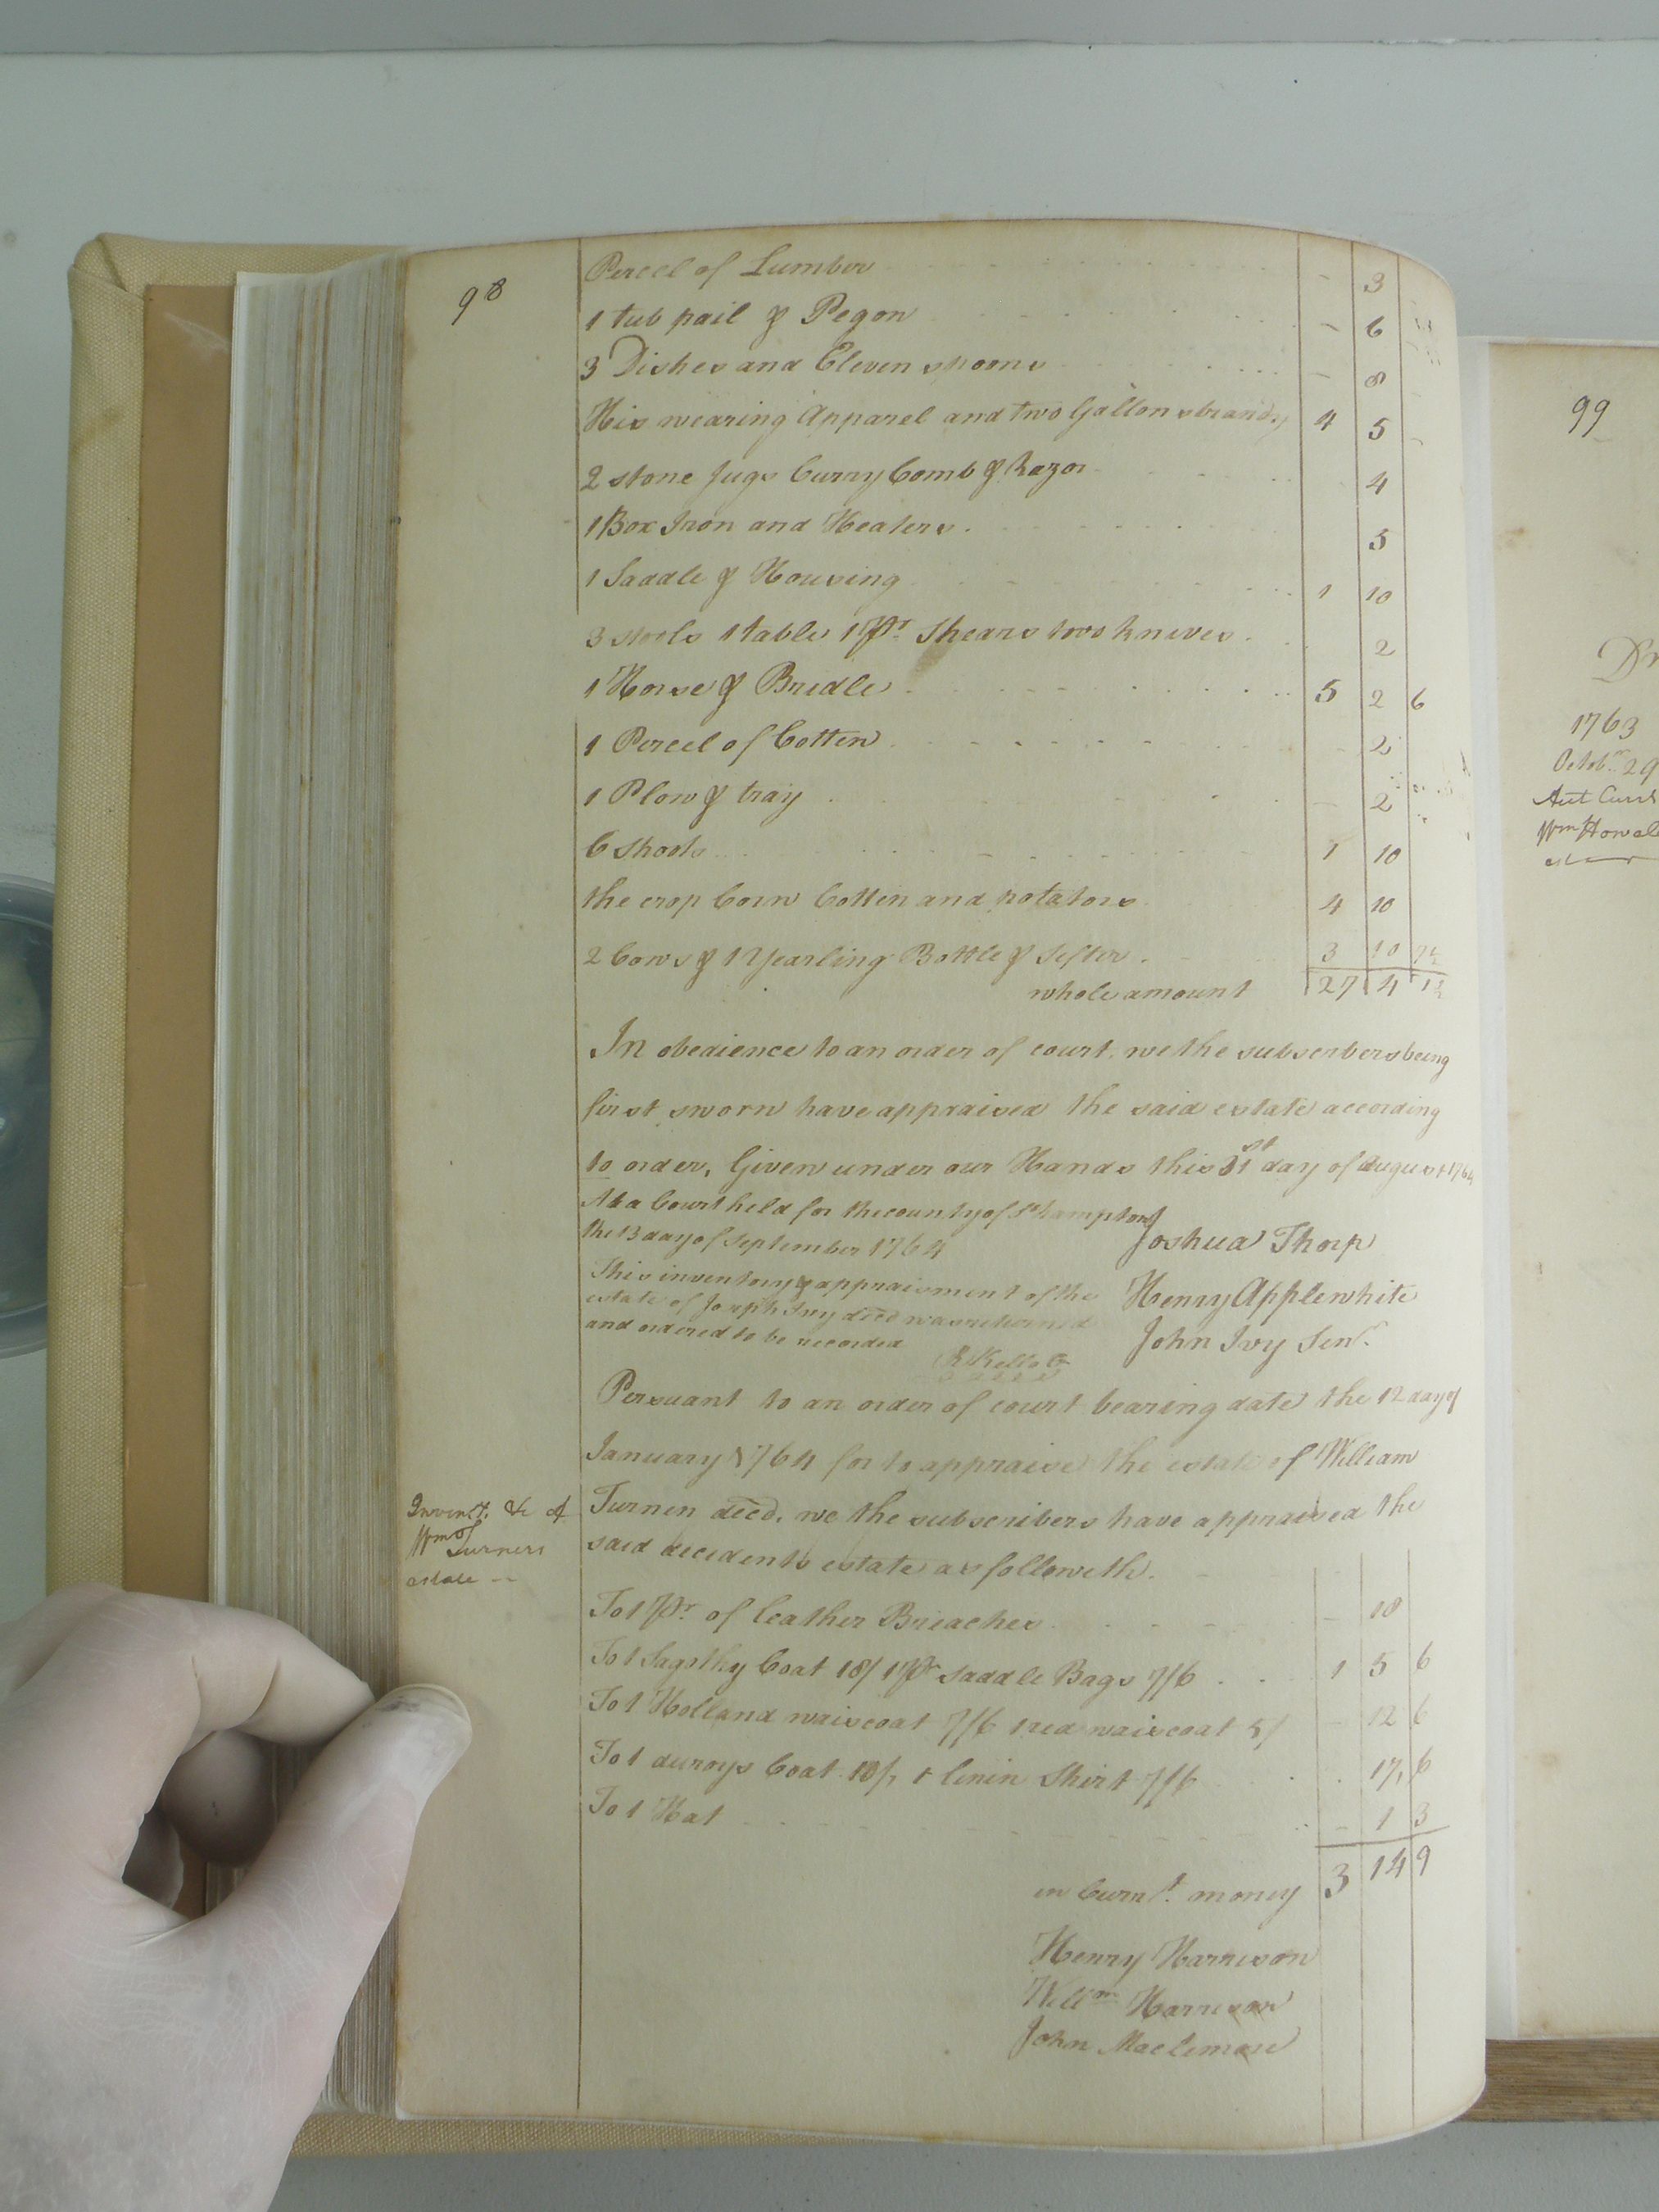 98
Percel of Lumber - 3
1 tub pail & Pegon - 6
3 Dishes and Eleven spoons - 8
His wearing Apparel and two Gallons brandy 4 5 -
2 stone Jugs Curry Comb & Razor 4
1 Box Iron and Heaters. 5
1 Saddle & Housing 1 10
3 stools 1 table 1 Pr. Shears two knives. 2
1 Horse & Bridle 5 2 6
1 Percel of Cotten 2
1 Plow & tray - 2
6 Shoats 1 10
the crop Corn Cotten and potatoes 4 10
2 Cows & 1 Yearling Bottle & Sefter. 3 10
whole amount 27 4 1½
In obedience to an order of court, we the subscribers being
first sworn have appraised the said estate according
to order, Given under our Hands this 31st day of August 1764
At a Court held for the county of Sthampton
the 13 day of September 1764
Joshua Thorp
This inventory & appraisment of the
Henry Applewhite
estate of Joseph Ivy decd was returned
and ordered to be recorded
John Ivy Senr.
Persuant to an order of court bearing date the 12 day of
January 1764 for to appraise the estate of William
Invent. &c of
Wm Turners
estate --
Turnen decd. we the subscribers have appraised the
said decedents estate as followeth.
To 1 Pr. of leather Breaches - 18
To 1 Sagothy Coat 18/ 1 Pr saddle Bags 7/6 1 5 6
To 1 Holland waiscoat 7/6 1 red waiscoat 5/ - 12 6
To 1 duroys Coat 10/, 1 linin Shirt 7/6 17, 6
To 1 Hat - 1 3
in Currt. money 3 14 9
Henry Harrison
Willm Harrison
John Maclemore
99
1763
Octobr 29
Act Curt
Wm Howel